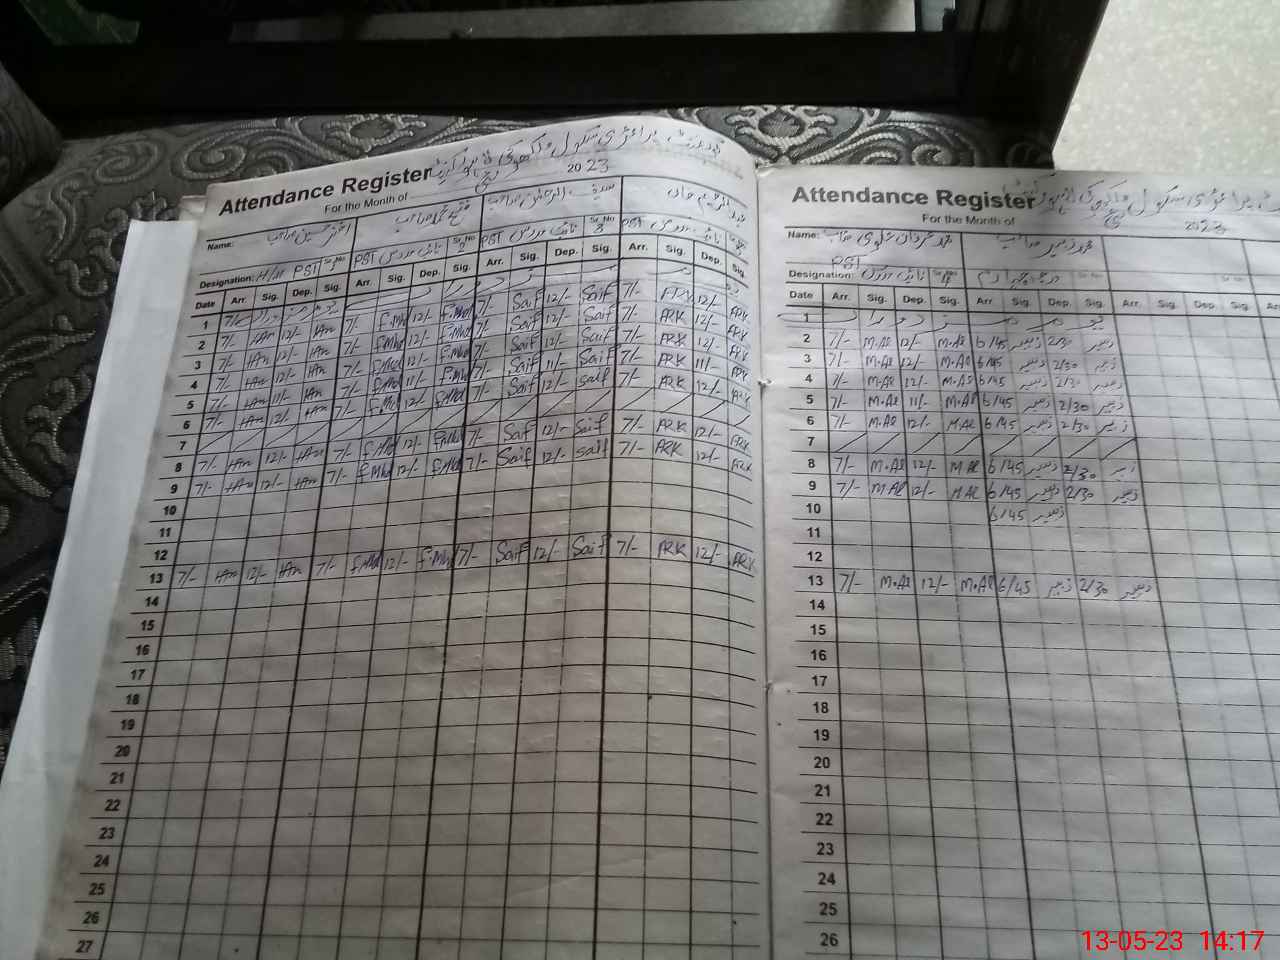 Attendance Register گورنمنٹ پرائمری سکول
For the Month of 2023
Name:
Designation: H/M PST Sr.No PST Sr.No PST Sr.No PST
Date Arr. Sig. Dep. Sig. Arr. Sig. Dep. Sig. Arr. Sig. Dep. Sig. Arr. Sig. Dep. Sig.
1
2 7/- HAn 12/- HAn 7/- f.Mhd 12/- f.Mhd 7/- Saif 12/- Saif 7/- ARK 12/- ARK
3 7/- HAn 12/- HAn 7/- f.Mhd 12/- f.Mhd 7/- Saif 12/- Saif 7/- ARK 12/- ARK
4 7/- HAn 12/- HAn 7/- f.Mhd 12/- f.Mhd 7/- Saif 12/- Saif 7/- ARK 12/- ARK
5 7/- HAn 11/- HAn 7/- f.Mhd 11/- f.Mhd 7/- Saif 11/- Saif 7/- ARK 11/- ARK
6 7/- HAn 12/- HAn 7/- f.Mhd 12/- f.Mhd 7/- Saif 12/- Saif 7/- ARK 12/- ARK
7
8 7/- HAn 12/- HAn 7/- f.Mhd 12/- f.Mhd 7/- Saif 12/- Saif 7/- ARK 12/- ARK
9 7/- HAn 12/- HAn 7/- f.Mhd 12/- f.Mhd 7/- Saif 12/- Saif 7/- ARK 12/- ARK
10
11
12
13 7/- HAn 12/- HAn 7/- f.Mhd 12/- f.Mhd 7/- Saif 12/- Saif 7/- ARK 12/- ARK
14
15
16
17
18
19
20
21
22
23
24
25
26
27
Attendance Register پرائمری سکول
For the Month of 2023
Name: محمد زبیر صاحب
PST
Designation: Sr.No
Date Arr. Sig. Dep. Sig. Arr. Sig. Dep. Sig. Arr. Sig. Dep. Sig. Arr.
1
2 7/- M.Al 12/- M.Al 6/45 زبیر 2/30 زبیر
3 7/- M.Al 12/- M.Al 6/45 زبیر 2/30 زبیر
4 7/- M.Al 12/- M.Al 6/45 زبیر 2/30 زبیر
5 7/- M.Al 11/- M.Al 6/45 زبیر 2/30 زبیر
6 7/- M.Al 12/- M.Al 6/45 زبیر 2/30 زبیر
7
8 7/- M.Al 12/- M.Al 6/45 زبیر 2/30 زبیر
9 7/- M.Al 12/- M.Al 6/45 زبیر 2/30 زبیر
10 6/45 زبیر
11
12
13 7/- M.Al 12/- M.Al 6/45 زبیر 2/30 زبیر
14
15
16
17
18
19
20
21
22
23
24
25
26
13-05-23 14:17